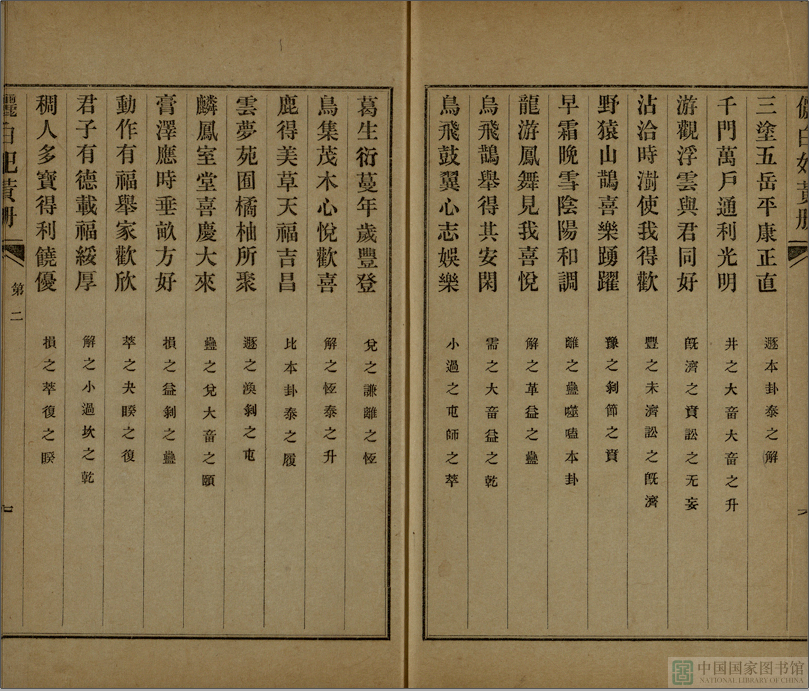 三塗五岳平康正直 遯本卦泰之解
千門萬戶通利光明 井之大畜大畜之升
游觀浮雲與君同好 旣濟之賁訟之无妄
沾洽時澍使我得歡 豐之未濟訟之旣濟
野猿山鵲喜樂踴躍 豫之剝節之賁
早霜晚雪陰陽和調 離之蠱噬嗑本卦
龍游鳳舞見我喜悅 解之革益之蠱
烏飛鵲舉得其安閑 需之大畜益之乾
鳥飛鼓翼心志娛樂 小過之屯師之萃
葛生衍蔓年歲豐登 兌之謙離之恆
鳥集茂木心悅歡喜 解之恆泰之升
鹿得美草天福吉昌 比本卦泰之履
雲夢苑囿橘柚所聚 遯之渙剝之屯
麟鳳室堂喜慶大來 蠱之兌大畜之頤
膏澤應時垂畝方好 損之益剝之蠱
動作有福舉家歡欣 萃之夬睽之復
君子有德載福綏厚 解之小過坎之乾
稠人多寶得利饒優 損之萃復之睽
第二
中国国家图书馆
NATIONAL LIBRARY OF CHINA